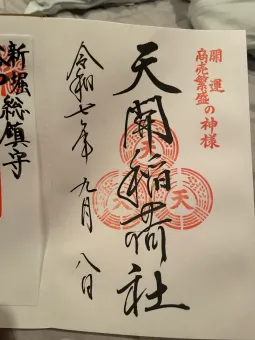 開運
商売繁盛の神様
天開稲荷社
天
天
天
令和七年 九月 八日
新堀総鎮守